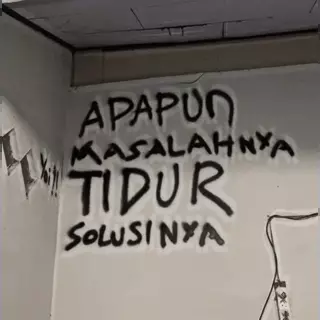 APAPUN
MASALAHNYA
TIDUR
SOLUSINYA